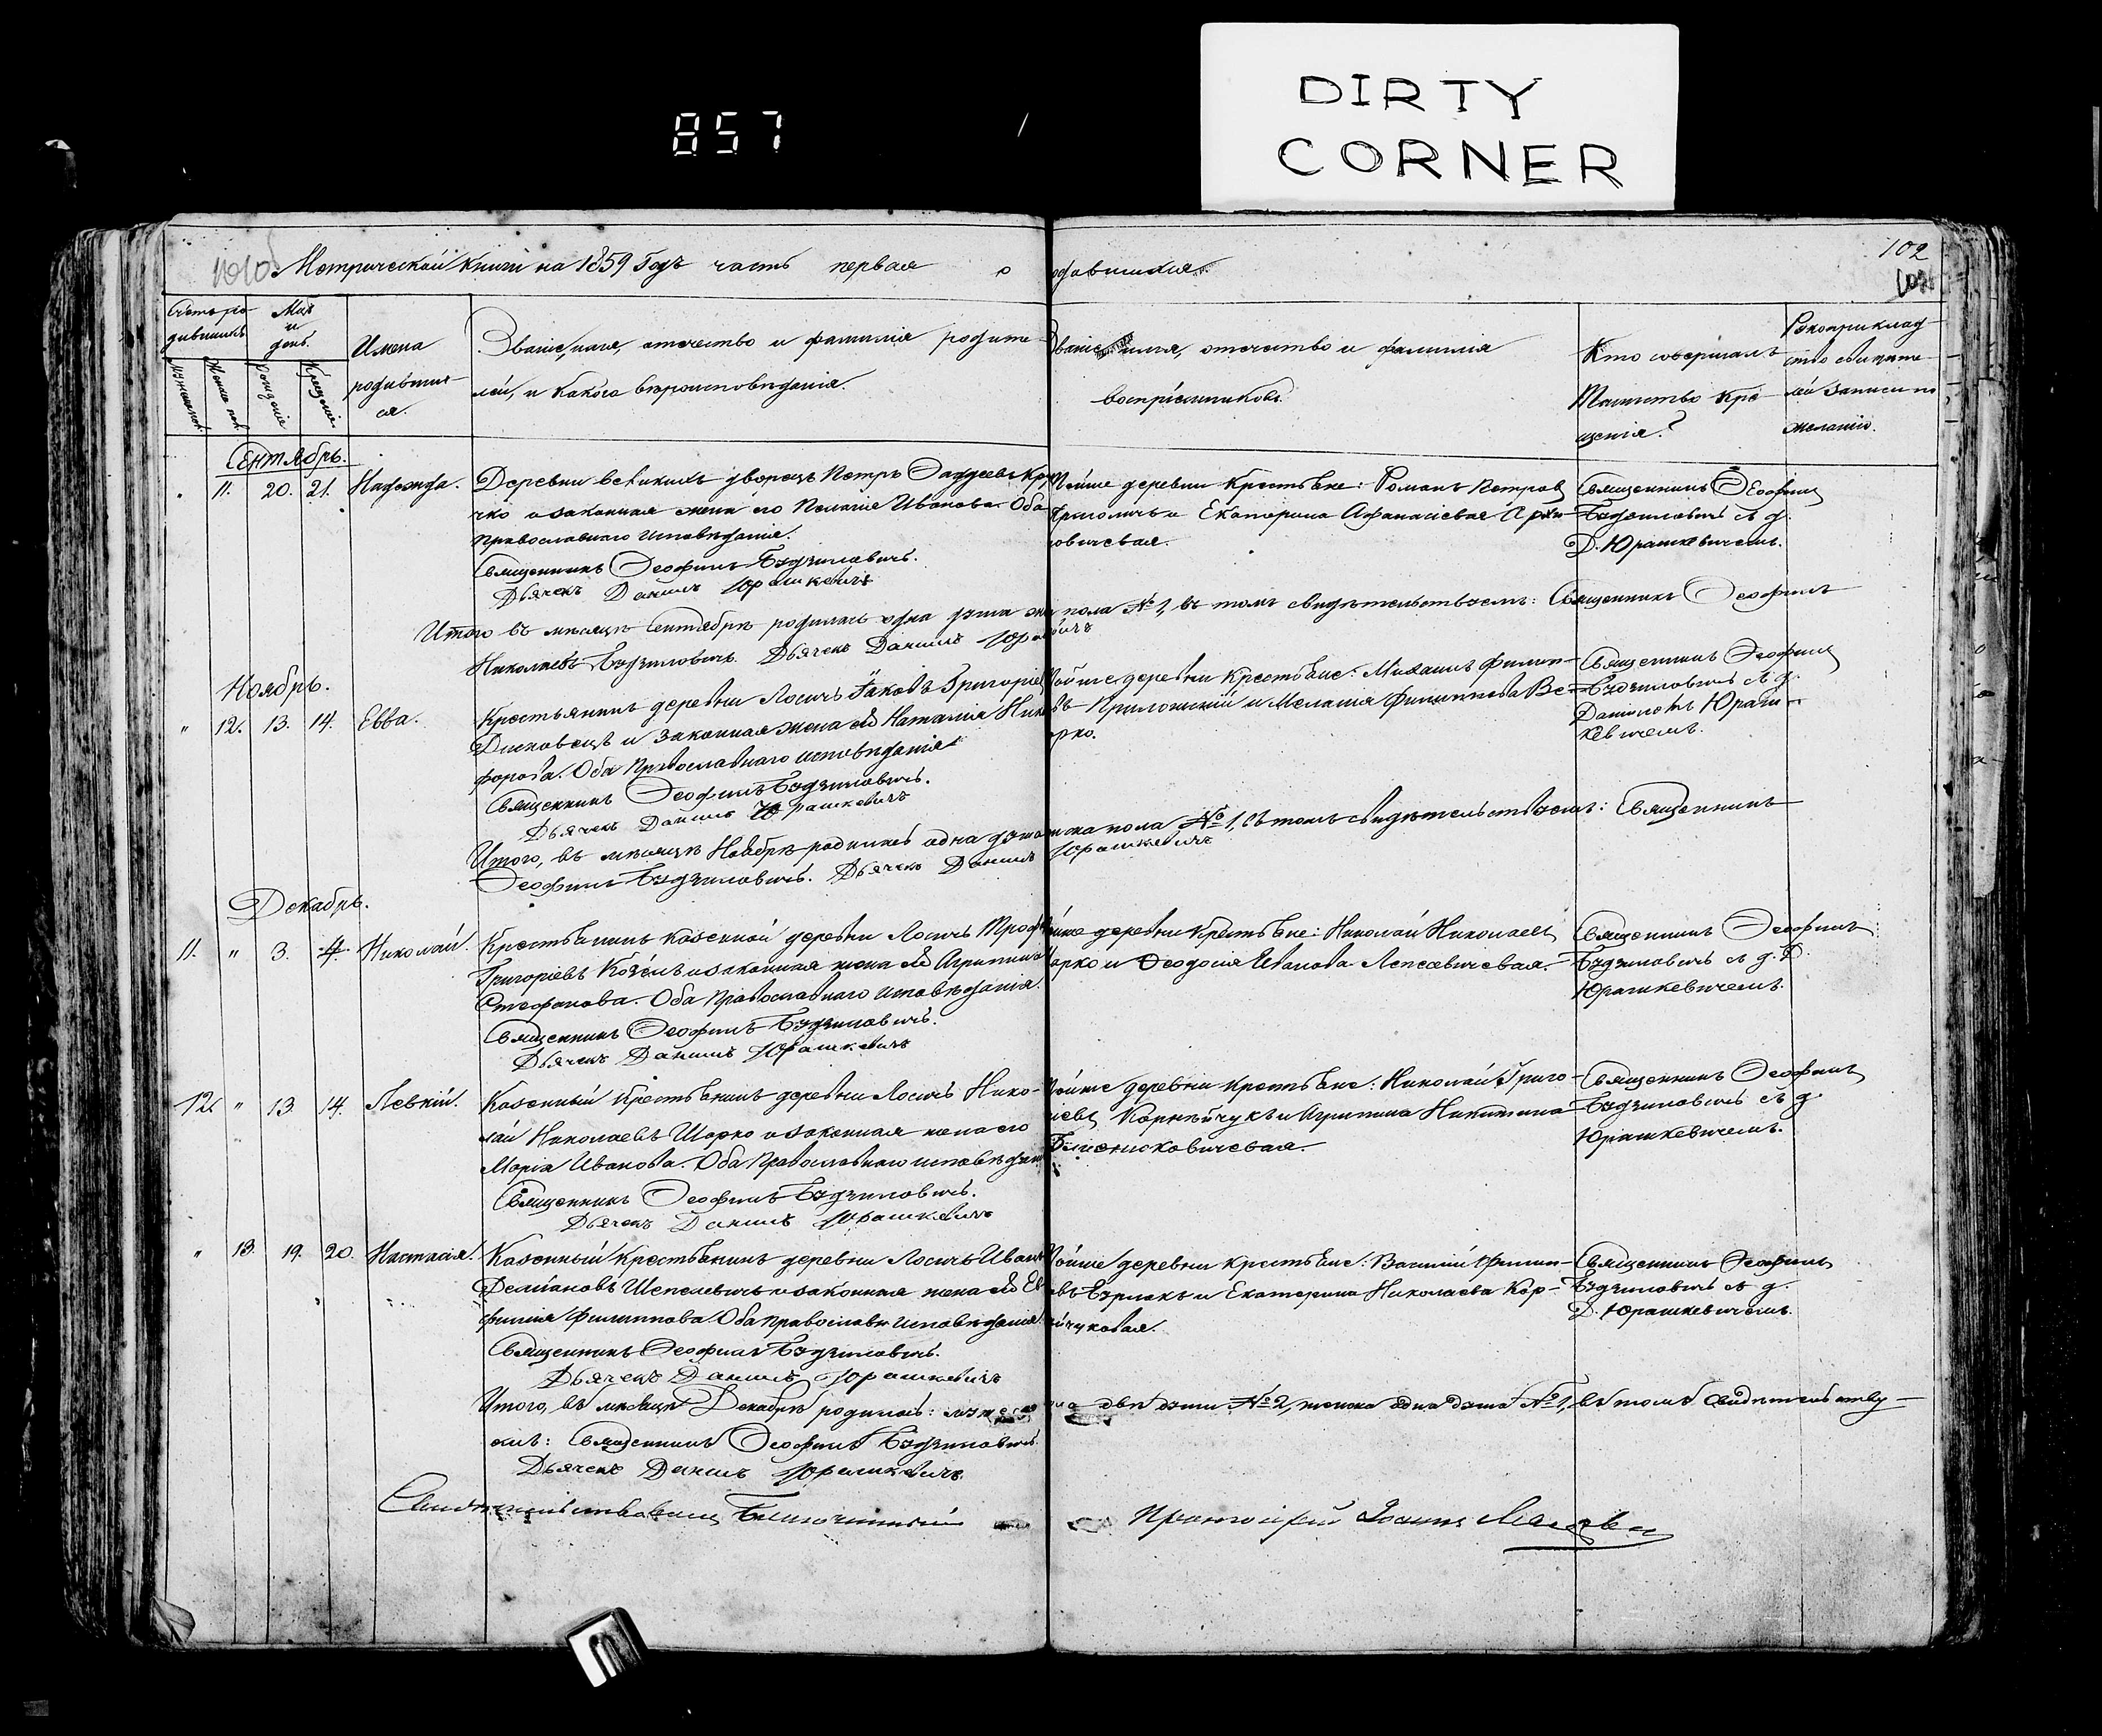 DIRTY
CORNER
857
102
Метрической книги на 1859 Годъ часть первая о родившихся.
Счетъ ро-
дившихся
Мѣс
и
день.
Мужеска пол.
Женска пол.
Рожденіе
Крещеніе
Имена
родивших-
ся.
Званіе, имя, отчество и фамилія родите-
лей, и какого вѣроисповѣданія.
Званіе, имя, отчество и фамилія
воспріемниковъ.
Кто совершалъ
Таинство Кре-
щенія?
Рукоприклад-
ство свидѣте-
лей записи по
желанію.
Сентябрь.
11. 20. 21. Надежда.
Деревни Великихъ дворецъ Петръ Фаддеевъ Кру
чко и законная жена его Пелагія Иванова. Оба
Православнаго исповѣданія.
Священникъ Ѳеофилъ Будзиловичъ.
Дьячекъ Данилъ Юрашкевичъ
Тойже деревни Крестьяне: Романъ Петровъ
и Екатерина Афанасіевая
Священникъ Ѳеофилъ
Будзиловичъ съ д.
Д. Юрашкевичемъ.
Итого въ мѣсяцѣ Сентябрѣ родилась одна душа жен пола № 1, въ томъ свидѣтельствуемъ: Священникъ Ѳеофилъ
Николаевъ Будзиловичъ. Дьячекъ Данилъ Юрашкевичъ
Ноябрь.
" 12. 13. 14. Евва.
Крестьянинъ деревни Лосичъ Іаковъ Григоріевъ
и законная жена его Наталія Ники
форова. Оба Православнаго исповѣданія
Священникъ Ѳеофилъ Будзиловичъ.
Дьячекъ Данилъ Юрашкевичъ
Тойже деревни Крестьяне: Михаилъ Филип-
овъ и Меланія Филиппова
Священникъ Ѳеофилъ
Будзиловичъ съ д.
Даниломъ Юраш-
кевичемъ.
Итого, въ мѣсяцѣ Ноябрѣ родилась одна душа женска пола № 1, въ томъ свидѣтельствуемъ: Священникъ
Ѳеофилъ Будзиловичъ. Дьячекъ Данилъ Юрашкевичъ
Декабрь.
11. " 3. 4. Николай.
Крестьянинъ казенной деревни Лосичъ Троф
Григоріевъ Козелъ и законная жена его Агрипина
Стефанова. Оба Православнаго исповѣданія.
Священникъ Ѳеофилъ Будзиловичъ.
Дьячекъ Данилъ Юрашкевичъ
Тойже деревни Крестьяне: Николай Николаевъ
Шарко и Ѳеодосія Иванова Лепсевичевая.
Священникъ Ѳеофилъ
Будзиловичъ съ д. Д.
Юрашкевичемъ.
12. " 13. 14. Левкій.
Казенный Крестьянинъ деревни Лосичъ Нико-
лай Николаевъ Шарко и законная жена его
Марія Иванова. Оба Православнаго исповѣдан
Священникъ Ѳеофилъ Будзиловичъ.
Дьячекъ Данилъ Юрашкевичъ
Тойже деревни Крестьяне: Николай Григо-
ріевъ Корнѣйчукъ и Агрипина Никитина
Священникъ Ѳеофилъ
Будзиловичъ съ д.
Юрашкевичемъ.
" 13. 19. 20. Настасія.
Казенный Крестьянинъ деревни Лосичъ Иванъ
Деміановъ Шепелевичъ и законная жена его Ев
фимія Филиппова. Оба Православн исповѣданія.
Священникъ Ѳеофилъ Будзиловичъ.
Дьячекъ Данилъ Юрашкевичъ
Тойже деревни Крестьяне: Василій Филип-
овъ Бурлакъ и Екатерина Николаева Кор-
нѣйчуковая.
Священникъ Ѳеофилъ
Будзиловичъ съ д.
Д. Юрашкевичемъ.
Итого, въ мѣсяцѣ Декабрѣ родилось: мужеска пола двѣ души № 2, женска одна душа № 1, въ томъ свидѣтельству-
емъ: Священникъ Ѳеофилъ Будзиловичъ.
Дьячекъ Данилъ Юрашкевичъ
Свидѣтельствовалъ Благочинный Протоіерей Іоаннъ